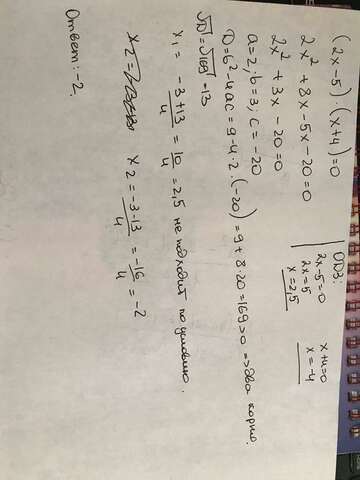 (2x-5)·(x+4)=0
2x²+8x-5x-20=0
2x²+3x-20=0
a=2, b=3; c=-20
D=b²-4ac=9-4·2·(-20)=9+8·20=169>0 => два корня.
√D=√169=13
x₁ = -3+13/4 = 10/4 = 2,5 не подходит по условию.
x2= x2= -3-13/4 = -16/4 = -2
Ответ: -2.
ОДЗ:
2x-5=0 x+4=0
2x=5 x=-4
x=2,5